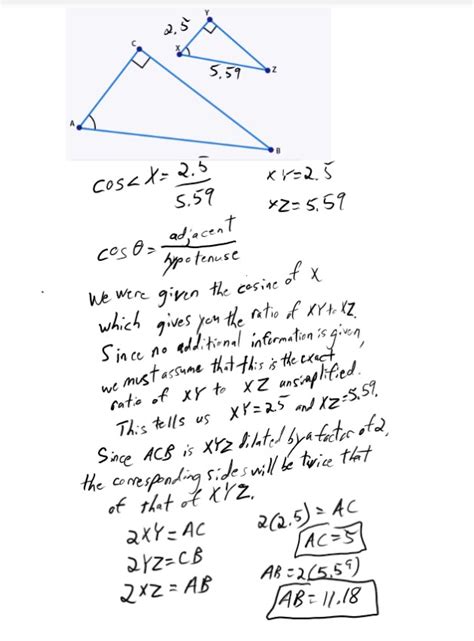 Y
2.5
C
X
5.59
Z
A
B
cos∠X = 2.5/5.59
XY=2.5
XZ=5.59
cos θ = adjacent/hypotenuse
We were given the cosine of X
which gives you the ratio of XY to XZ.
Since no additional information is given,
we must assume that this is the exact
ratio of XY to XZ unsimplified.
This tells us XY=2.5 and XZ=5.59.
Since ACB is XYZ dilated by a factor of 2,
the corresponding sides will be twice that
of that of XYZ.
2XY=AC
2YZ=CB
2XZ=AB
2(2.5)=AC
AC=5
AB=2(5.59)
AB=11.18